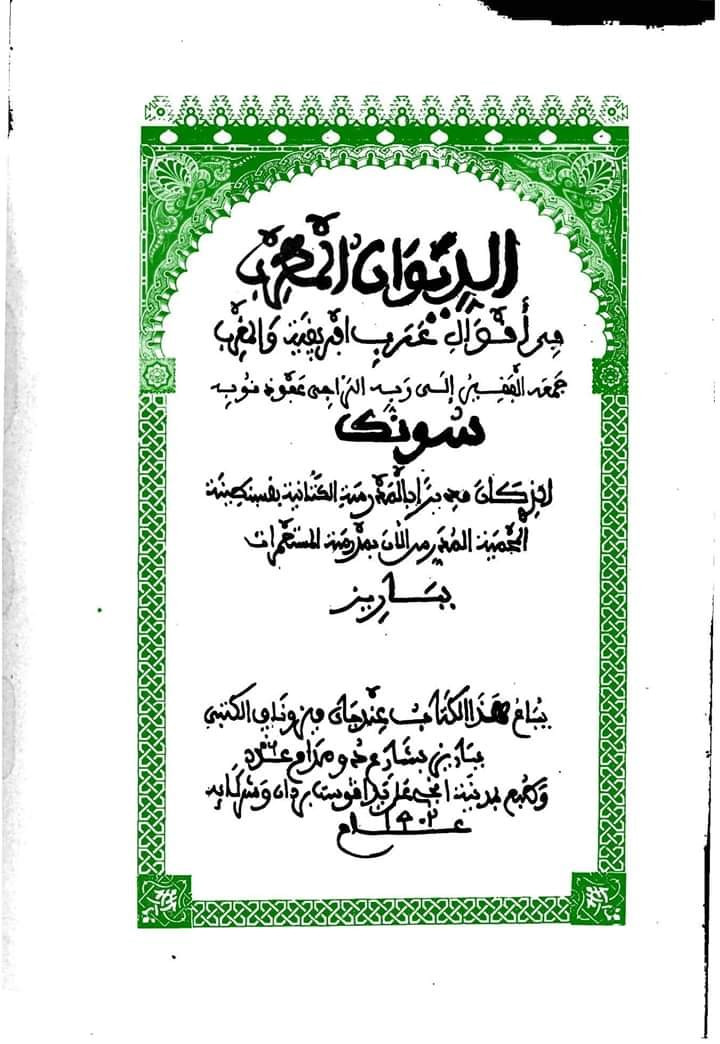 الديوان المغرب
في أقوال عرب افريقية والمغرب
جمعه الفقير إلى ربه الراجى عفو ذنوبه
سونك
الذي كان مدبرا بالمدرسة الكتانية بقسنطينة
المحمية المدرس الان بمدرسة المستعمرات
بباريز
يباع هذا الكتاب عند جان ميزوناف الكتبي
ببارِيز بشارع دو مدام عدد
وطبع بمدينة على يد اقوست بردان وشركايه
عام ١٩٠٢